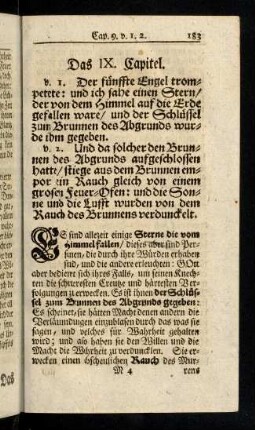 Cap. 9. v. 1. 2. 183
Das IX. Capitel.
v. 1. Der fünffte Engel trom-
petete: und ich sahe einen Stern/
der von dem Himmel auf die Erde
gefallen ware/ und der Schlüssel
zum Brunnen des Abgrunds wur-
de ihm gegeben.
v. 2. Und da solcher den Brun-
nen des Abgrunds aufgeschlossen
hatte/ stiege aus dem Brunnen em-
por ein Rauch gleich von einem
grosen Feuer-Ofen: und die Son-
ne und die Lufft wurden von dem
Rauch des Brunnens verdunckelt.
ES sind allezeit einige Sterne die vom
Himmel fallen/ dieses aber sind Per-
sonen, die durch ihre Würden erhaben
sind, und die andere erleuchten: GOtt
aber bedient sich ihres Falls, um seinen Knech-
ten die schweresten Creutze und härtesten Ver-
folgungen zu erwecken. Es ist ihnen der Schlüs-
sel zum Brunnen des Abgrunds gegeben:
Es scheinet, sie hätten Macht denen andern die
Verläumdungen einzublasen durch das was sie
sagen, und welches für Wahrheit gehalten
wird; und als haben sie den Willen und die
Macht die Wahrheit zu verdunckeln. Sie er-
wecken einen abscheulichen Rauch des Mur-
M 4 rens